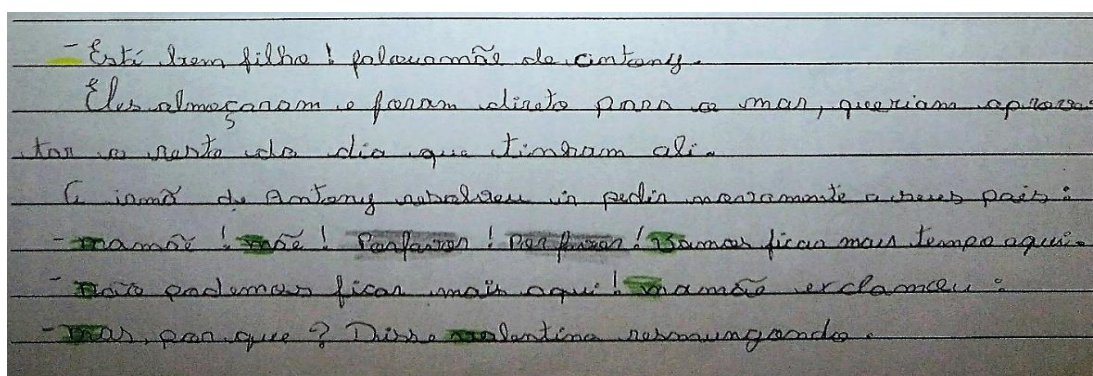 - Está bem filho! falou a mãe de antony.
Eles almoçaram e foram direto para o mar, queriam aprovei
tar o resto do dia que tinham ali.
A irmã de Antony resolveu ir pedir novamente a seus pais:
- mamãe! mãe! Porfavor! Por favor! Vamos ficar mais tempo aqui.
- não podemos ficar mais aqui! mamãe exclamou:
- mas, por que? Disse valentina resmungando.